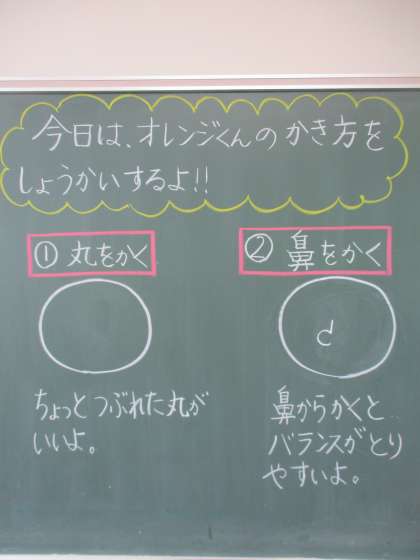 今日は、オレンジくんのかき方を
しょうかいするよ!!
① 丸をかく
ちょっとつぶれた丸が
いいよ。
② 鼻をかく
鼻からかくと
バランスがとり
やすいよ。